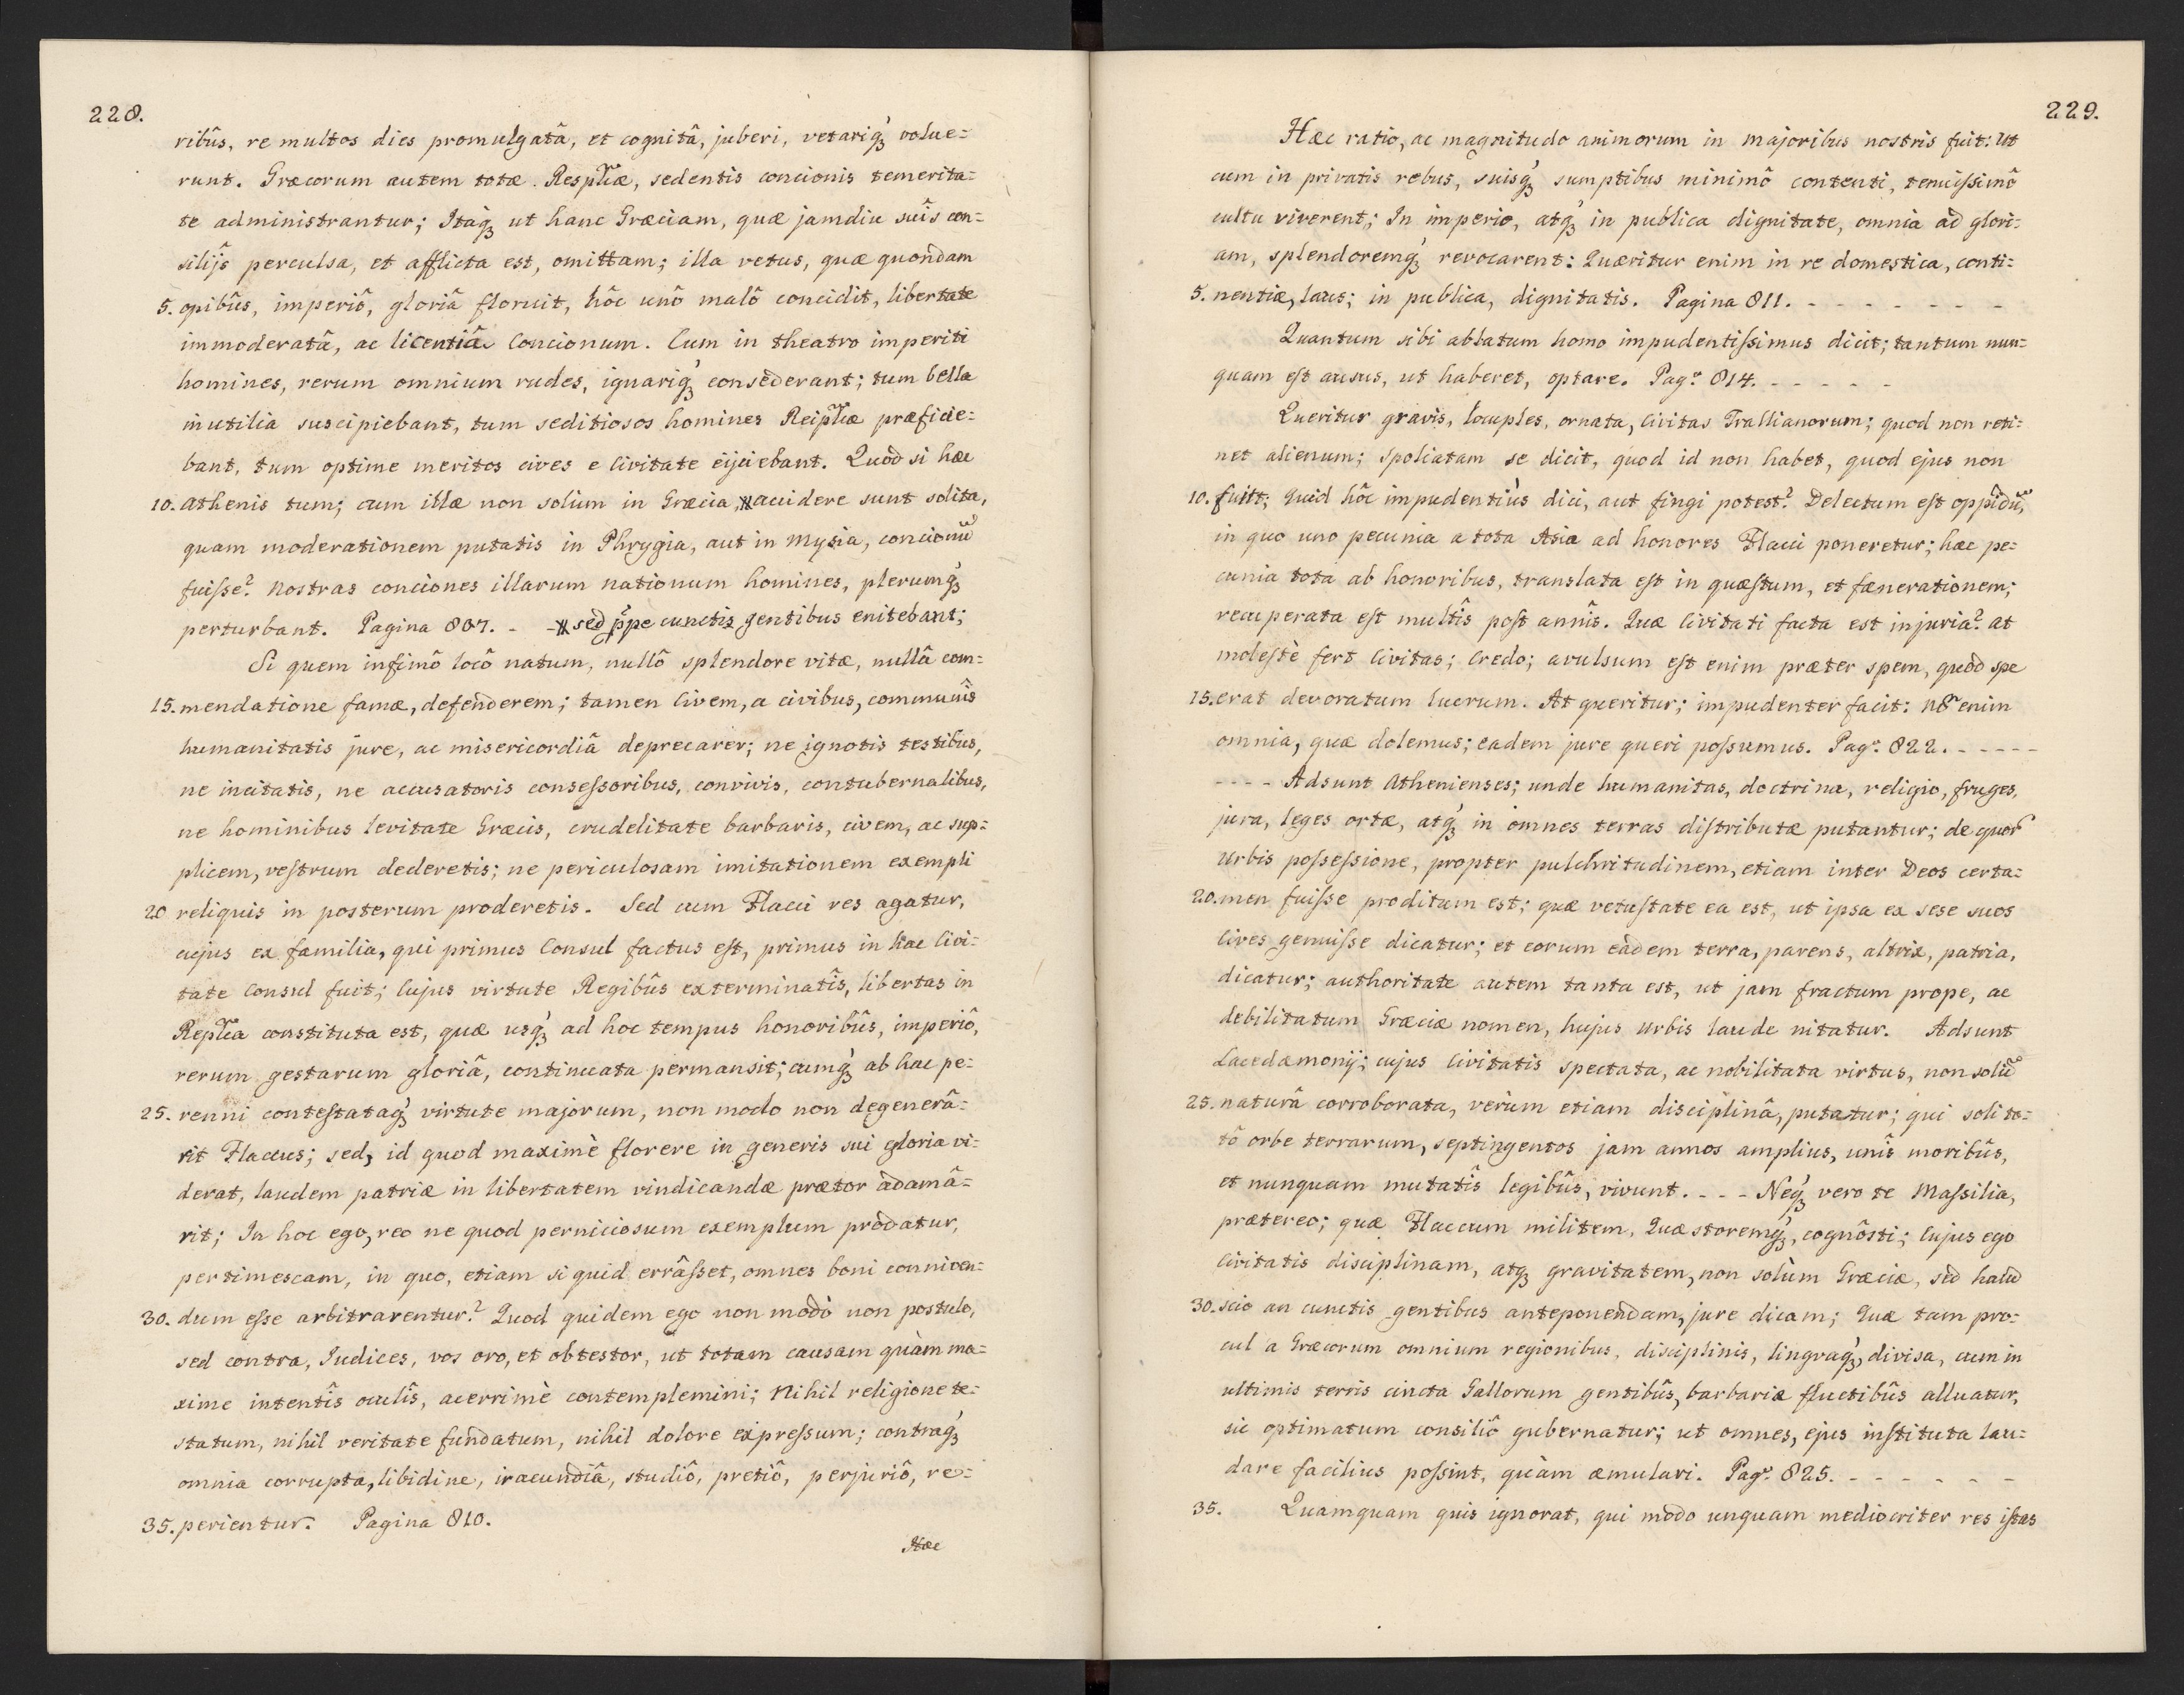 228.
ribûs, re multos dies promulgatâ, et cognitâ, juberi, vetariq́ꝫ volue=
runt. Græcorum autem totæ Resplicæ, sedentis concionis temerita=
te administrantur; Itaq́ꝫ ut hanc Græciam, quæ jamdiu suîs con=
silijs perculsa, et afflicta est, omittam; illa vetus, quæ quondam
5. opibûs, imperiô, gloriâ floruit, hôc unô malô concidit, libertate
immoderatâ, ac licentiâ Concionum. Cum in theatro imperiti
homines, rerum omnium rudes, ignariq́ꝫ consederant; tum bella
inutilia suscipiebant, tum seditiosos homines Reiplicæ præficie=
bant, tum optime meritos cives e Civitate eijciebant. Quod si hæc
10. Athenis tum; cum illæ non solùm in Græcia, ꝟ accidere sunt solita,
quam moderationem putatis in Phrygia, aut in Mysia, concionũ
fuiſse? Nostras conciones illarum nationum homines, plerumq́ꝫ
perturbant. Pagina 807. - ꝟ sed ꝓpe cunctis gentibus enitebant;
Si quem infimô locô natum, nullô splendore vitæ, nullâ com=
15. mendatione famæ, defenderem; tamen Civem, a civibus, communîs
humanitatis jure, ac misericordiâ deprecarer; ne ignotis testibus,
ne incitatis, ne accusatoris conseſsoribus, convivis, contubernalibus,
ne hominibus levitate Græcis, crudelitate barbaris, civem, ac sup=
plicem, vestrum dederetis; ne periculosam imitationem exempli
20 reliquis in posterum proderetis. Sed cum Flacci res agatur,
cujus ex familia, qui primus Consul factus est, primus in hac Civi=
tate Consul fuit; Cujus virtute Regibûs exterminatîs, libertas in
Replica constituta est, quæ usq́ꝫ ad hoc tempus honoribûs, imperiô,
rerum gestarum gloriâ, continuata permansit; cumq́ꝫ ab hac pe=
25. renni contestataq́ꝫ virtute majorum, non modo non degenerâ=
rit Flaccus; sed, id quod maximè florere in generis sui gloria vi=
derat, laudem patriæ in libertatem vindicandæ prætor adamâ=
rit; In hoc ego, reo ne quod perniciosum exemplum prodatur,
pertimescam, in quo, etiam si quid errâſset, omnes boni conniven=
30. dum eſse arbitrarentur? Quod quidem ego non modò non postulo,
sed contra, Iudices, vos oro, et obtestor, ut totam causam quàm ma=
xime intentîs oculîs, acerrimè contemplemini; Nihil religione te=
statum, nihil veritate fundatum, nihil dolore expreſsum; contraq́ꝫ
omnia corrupta, libidine, iracundiâ, studiô, pretiô, perjuriô, re=
35. perientur. Pagina 810.
Hæc
229.
Hæc ratio, ac magnitudo animorum in majoribus nostris fuit: Ut
cum in privatis rebus, suisq́ꝫ sumptibus minimô contenti, tenuiſsimô
cultu viverent; In imperio, atq́ꝫ in publica dignitate, omnia ad glori=
am, splendoremq́ꝫ revocarent: Quæritur enim in re domestica, conti=
5. nentiæ, laus; in publica, dignitatis. Pagina 811. - - - - - - -
Quantum sibi ablatum homo impudentiſsimus dicit; tantum nun=
quam est ausus, ut haberet, optare. Pagᵃ 814. - - - - -
Queritur gravis, locuples, ornata, Civitas Trallianorum; quod non reti=
net alienum; Spoliatam se dicit, quod id non habet, quod ejus non
10. fuit; Quid hôc impudentiùs dici, aut fingi potest? Delectum est oppidũ,
in quo uno pecunia a tota Asia ad honores Flacci poneretur; hæc pe=
cunia tota ab honoribus, translata est in quæstum, et fænerationem;
recuperata est multîs post annîs. Quæ Civitati facta est injuria? At
molestè fert Civitas; Credo; avulsum est enim præter spem, quod spe
15. erat devoratum lucrum. At queritur; impudenter facit: nõ enim
omnia, quæ dolemus; eadem jure queri poſsumus. Pagᵃ 822. - - - - -
- - - - Adsunt Athenienses; unde humanitas, doctrina, religio, fruges,
jura, leges ortæ, atq́ꝫ in omnes terras distributæ putantur; de quoꝝ
Urbis poſseſsione, propter pulchritudinem, etiam inter Deos certa=
20. men fuiſse proditum est; quæ vetustate ea est, ut ipsa ex sese suos
Cives genuiſse dicatur; et eorum eadem terra, parens, altrix, patria,
dicatur; authoritate autem tanta est, ut jam fractum prope, ac
debilitatum Græciæ nomen, hujus Urbis laude nitatur. Adsunt
Lacedæmonij; cujus Civitatis spectata, ac nobilitata virtus, non solũ
25. naturâ corroborata, verùm etiam disciplinâ, putatur; qui soli to=
tô orbe terrarum, septingentos jam annos amplius, unîs moribûs,
et nunquam mutatîs legibûs, vivunt. - - - Neq́ꝫ vero te Maſsilia,
prætereo; quæ Flaccum militem, Quæstoremq́ꝫ, cognôsti; Cujus ego
Civitatis disciplinam, atqꝫ gravitatem, non solùm Græciæ, sed haud
30. scio an cunctis gentibus anteponendam, jure dicam; Quæ tam pro=
cul a Græcorum omnium regionibus, disciplinis, linguaq́ꝫ, divisa, cum in
ultimis terris cincta Gallorum gentibûs, barbariæ fluctibûs alluatur,
sic optimatum consiliô gubernatur; ut omnes, ejus instituta lau=
dare facilius poſsint, quàm æmulari. Pagᵃ 825. - - - - - -
35. Quamquam quis ignorat, qui modo unquam mediocriter res istas